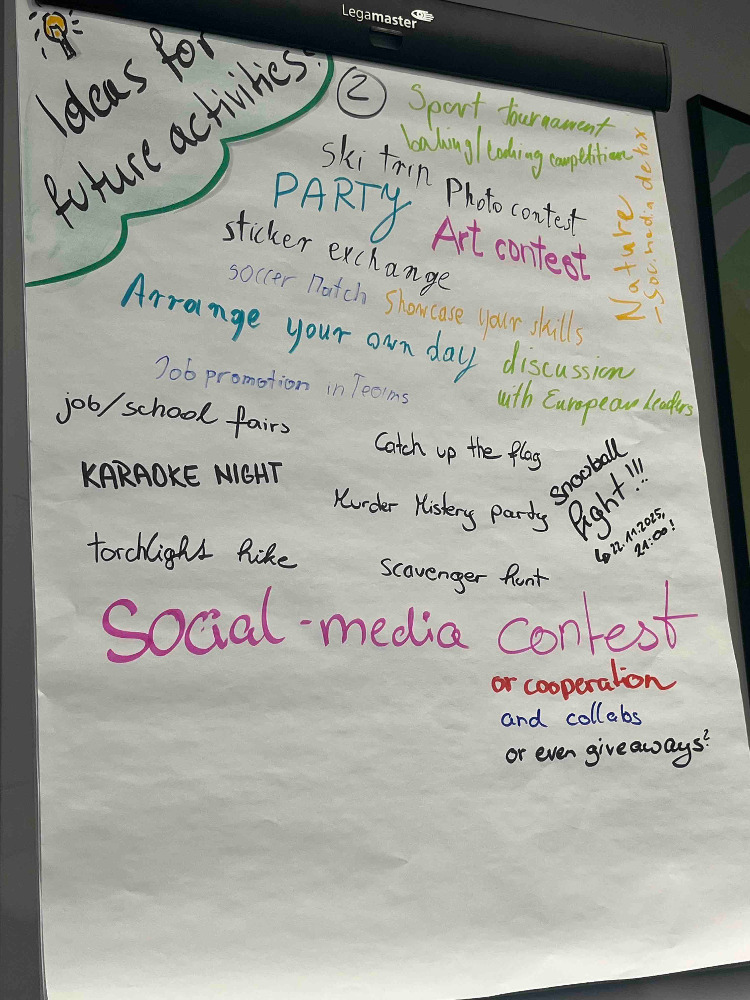 Legamaster
Ideas for
future activities:
2
Sport tournament
baking/cooking competition
ski trip
Photo contest
PARTY
Art contest
Nature
- Soc. media detox
sticker exchange
soccer Match
Showcase your skills
Arrange your own day
discussion
with European leaders
Job promotion in Teams
job/school fairs
Catch up the flag
KARAOKE NIGHT
Murder Mistery party
snowball
fight!!!
↳ 22.11.2025,
21:00!
torchlight hike
scavenger hunt
Social-media contest
or cooperation
and collabs
or even giveaways?